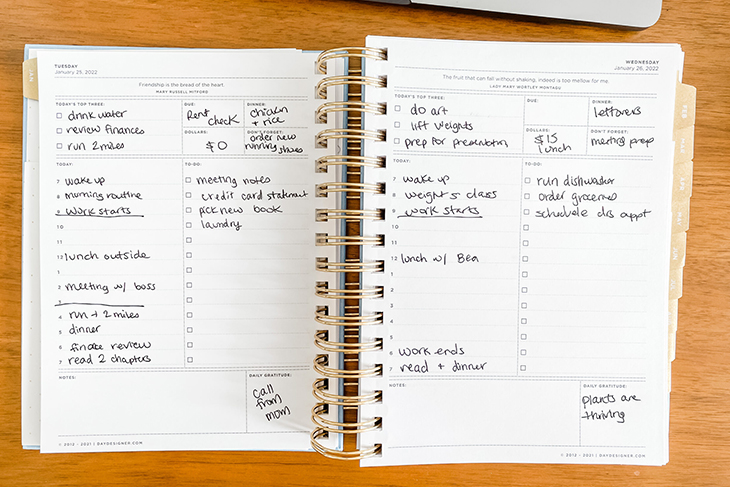 TUESDAY
January 25, 2022
Friendship is the bread of the heart.
MARY RUSSELL MITFORD
TODAY'S TOP THREE:
drink water
review finances
run 2 miles
DUE:
Rent check
DINNER:
chicken + rice
DOLLARS:
$0
DON'T FORGET:
order new running shoes
TODAY:
7 wake up
8 morning routine
9 work starts
10
11
12 lunch outside
1
2 meeting w/ boss
3
4 run + 2 miles
5 dinner
6 finance review
7 read 2 chapters
TO-DO:
meeting notes
credit card statement
pick new book
laundry
NOTES:
DAILY GRATITUDE:
call
from
mom
© 2012 - 2021 / DAYDESIGNER.COM
JAN
WEDNESDAY
January 26, 2022
The fruit that can fall without shaking, indeed is too mellow for me.
LADY MARY WORTLEY MONTAGU
TODAY'S TOP THREE:
do art
lift weights
prep for presentation
DUE:
DINNER:
leftovers
DOLLARS:
$15
lunch
DON'T FORGET:
meeting prep
TODAY:
7 wake up
8 weights class
9 work starts
10
11
12 lunch w/ Bea
1
2
3
4
5
6 work ends
7 read + dinner
TO-DO:
run dishwasher
order groceries
schedule drs appt
NOTES:
DAILY GRATITUDE:
plants are
thriving
© 2012 - 2021 / DAYDESIGNER.COM
FEB
MAR
APR
MAY
JUN